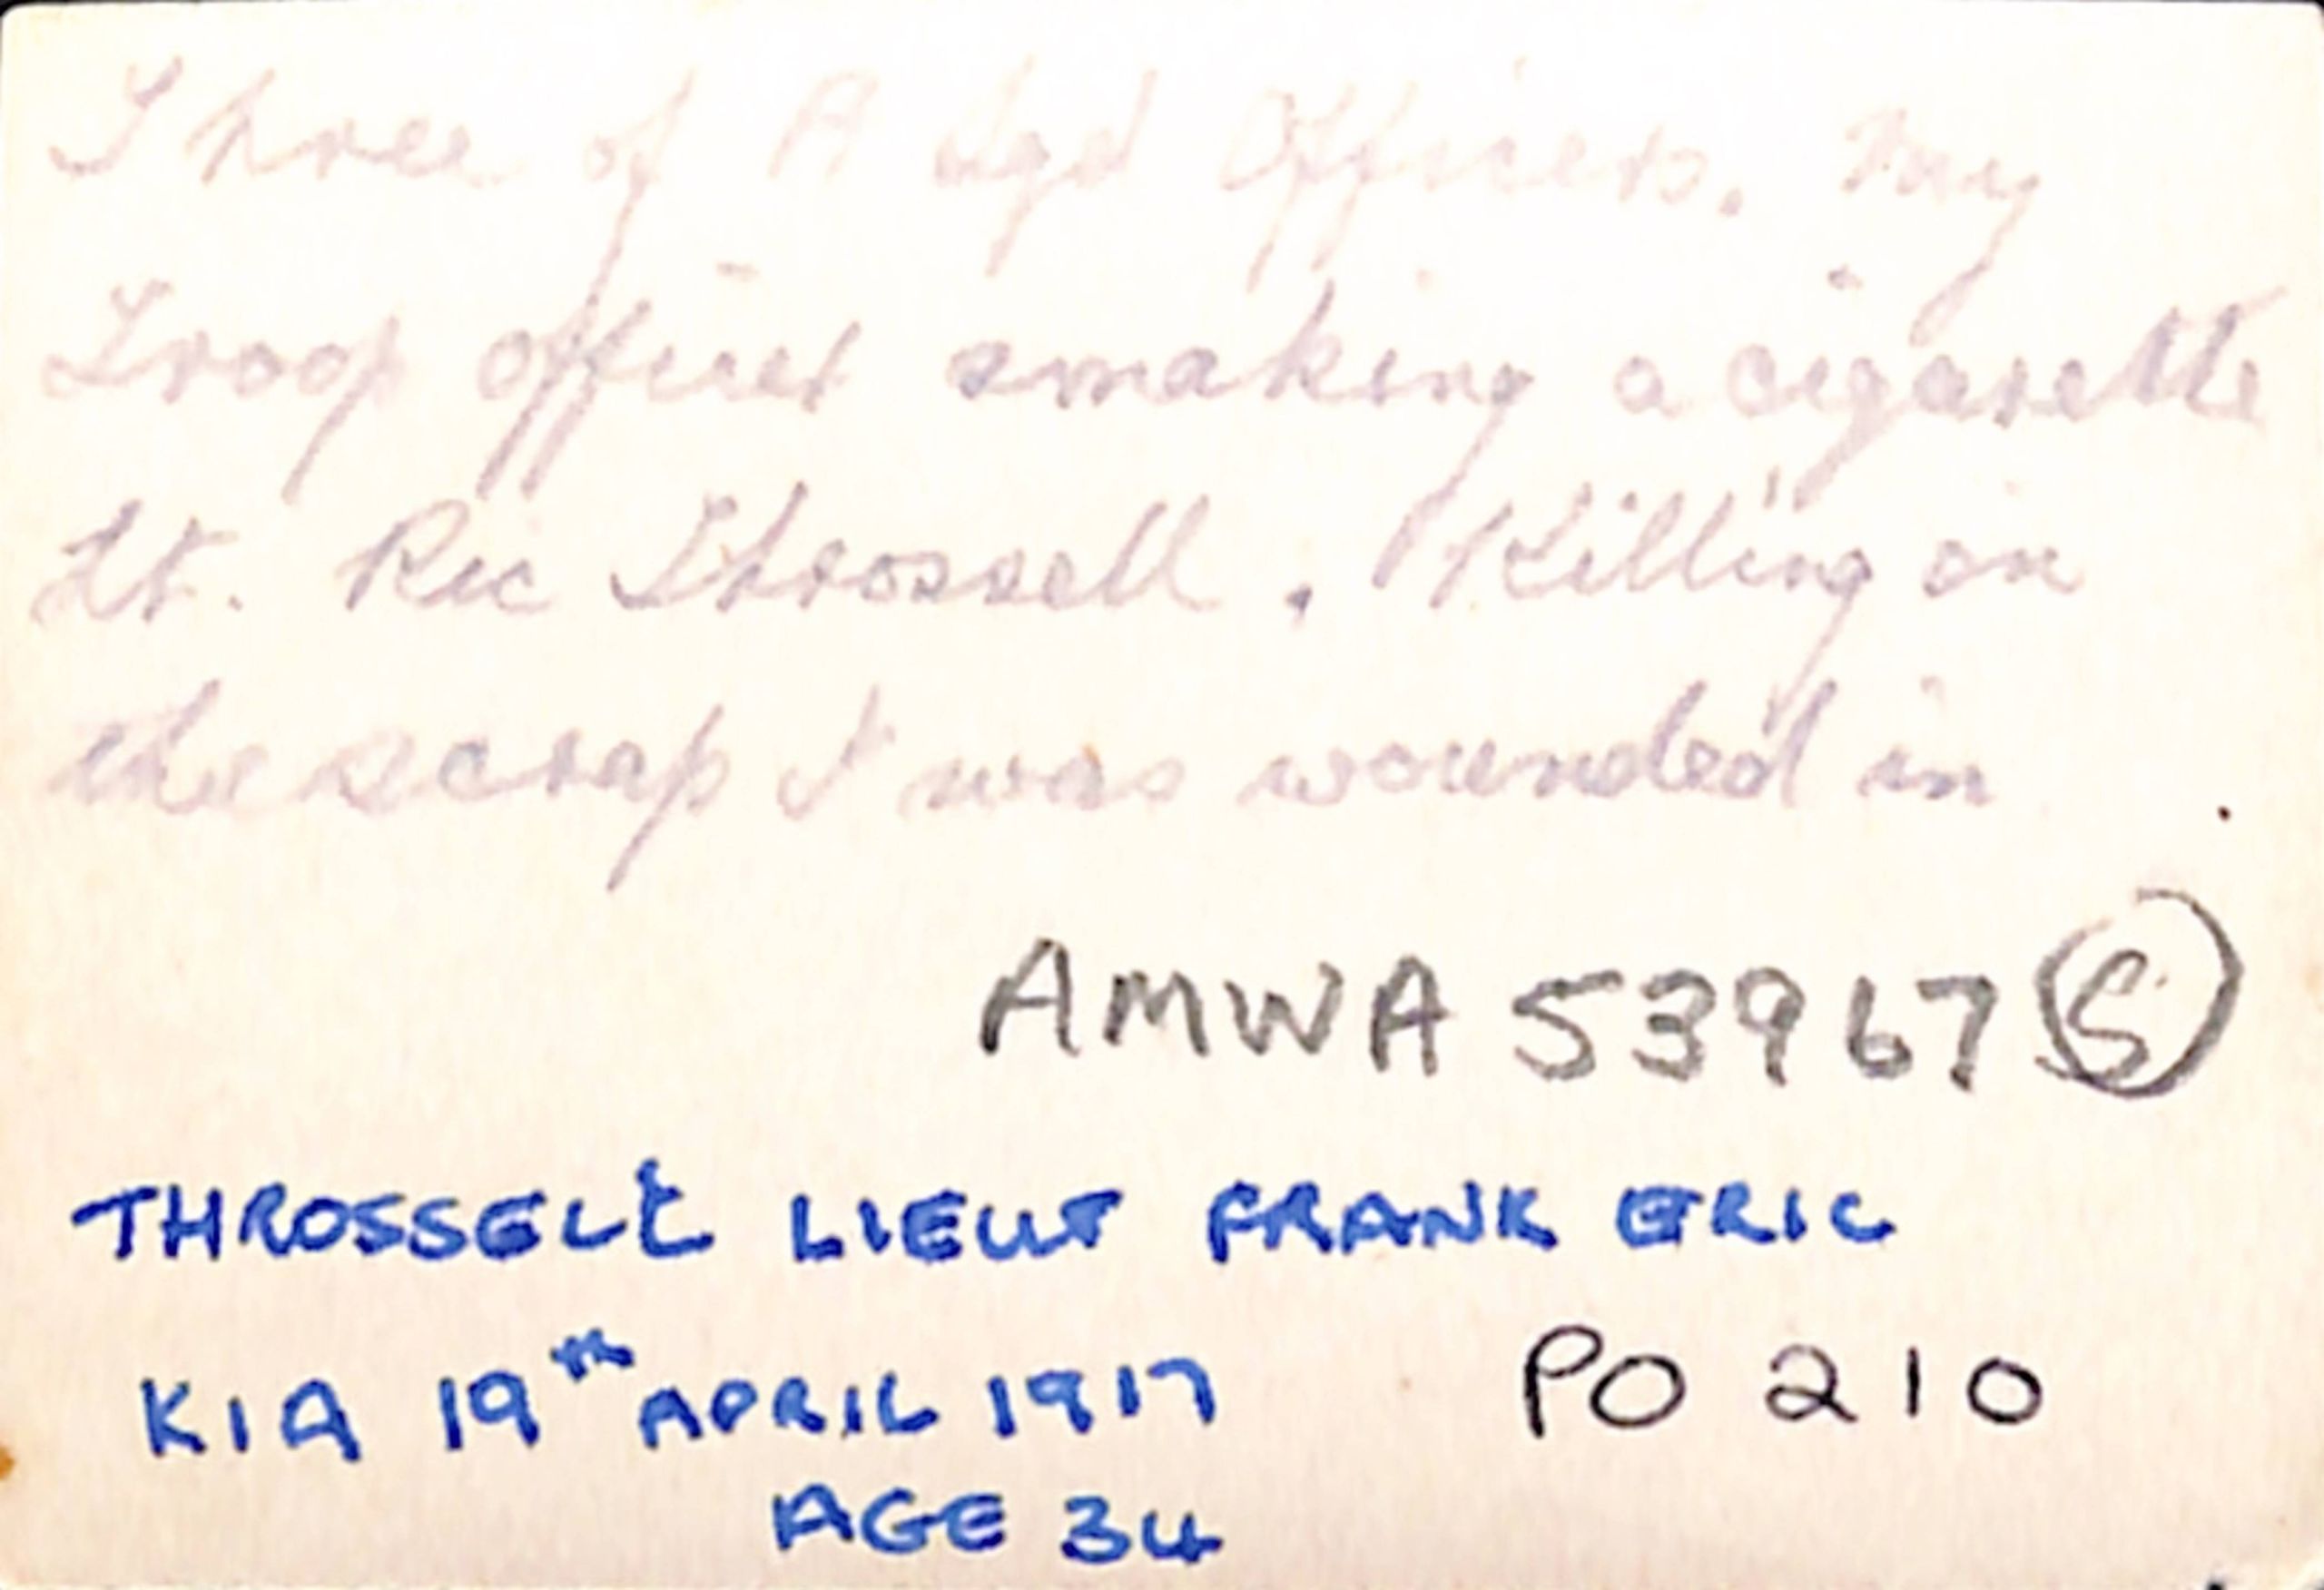 Three of A Sqd Officers. My
Troop officer smaking a cigarette
Lt. Ric Throssell. Killing in
the scrap I was wounded in
AMWA 53967 S
THROSSELL LIEUT FRANK ERIC
KIA 19th APRIL 1917 PO 210
AGE 34